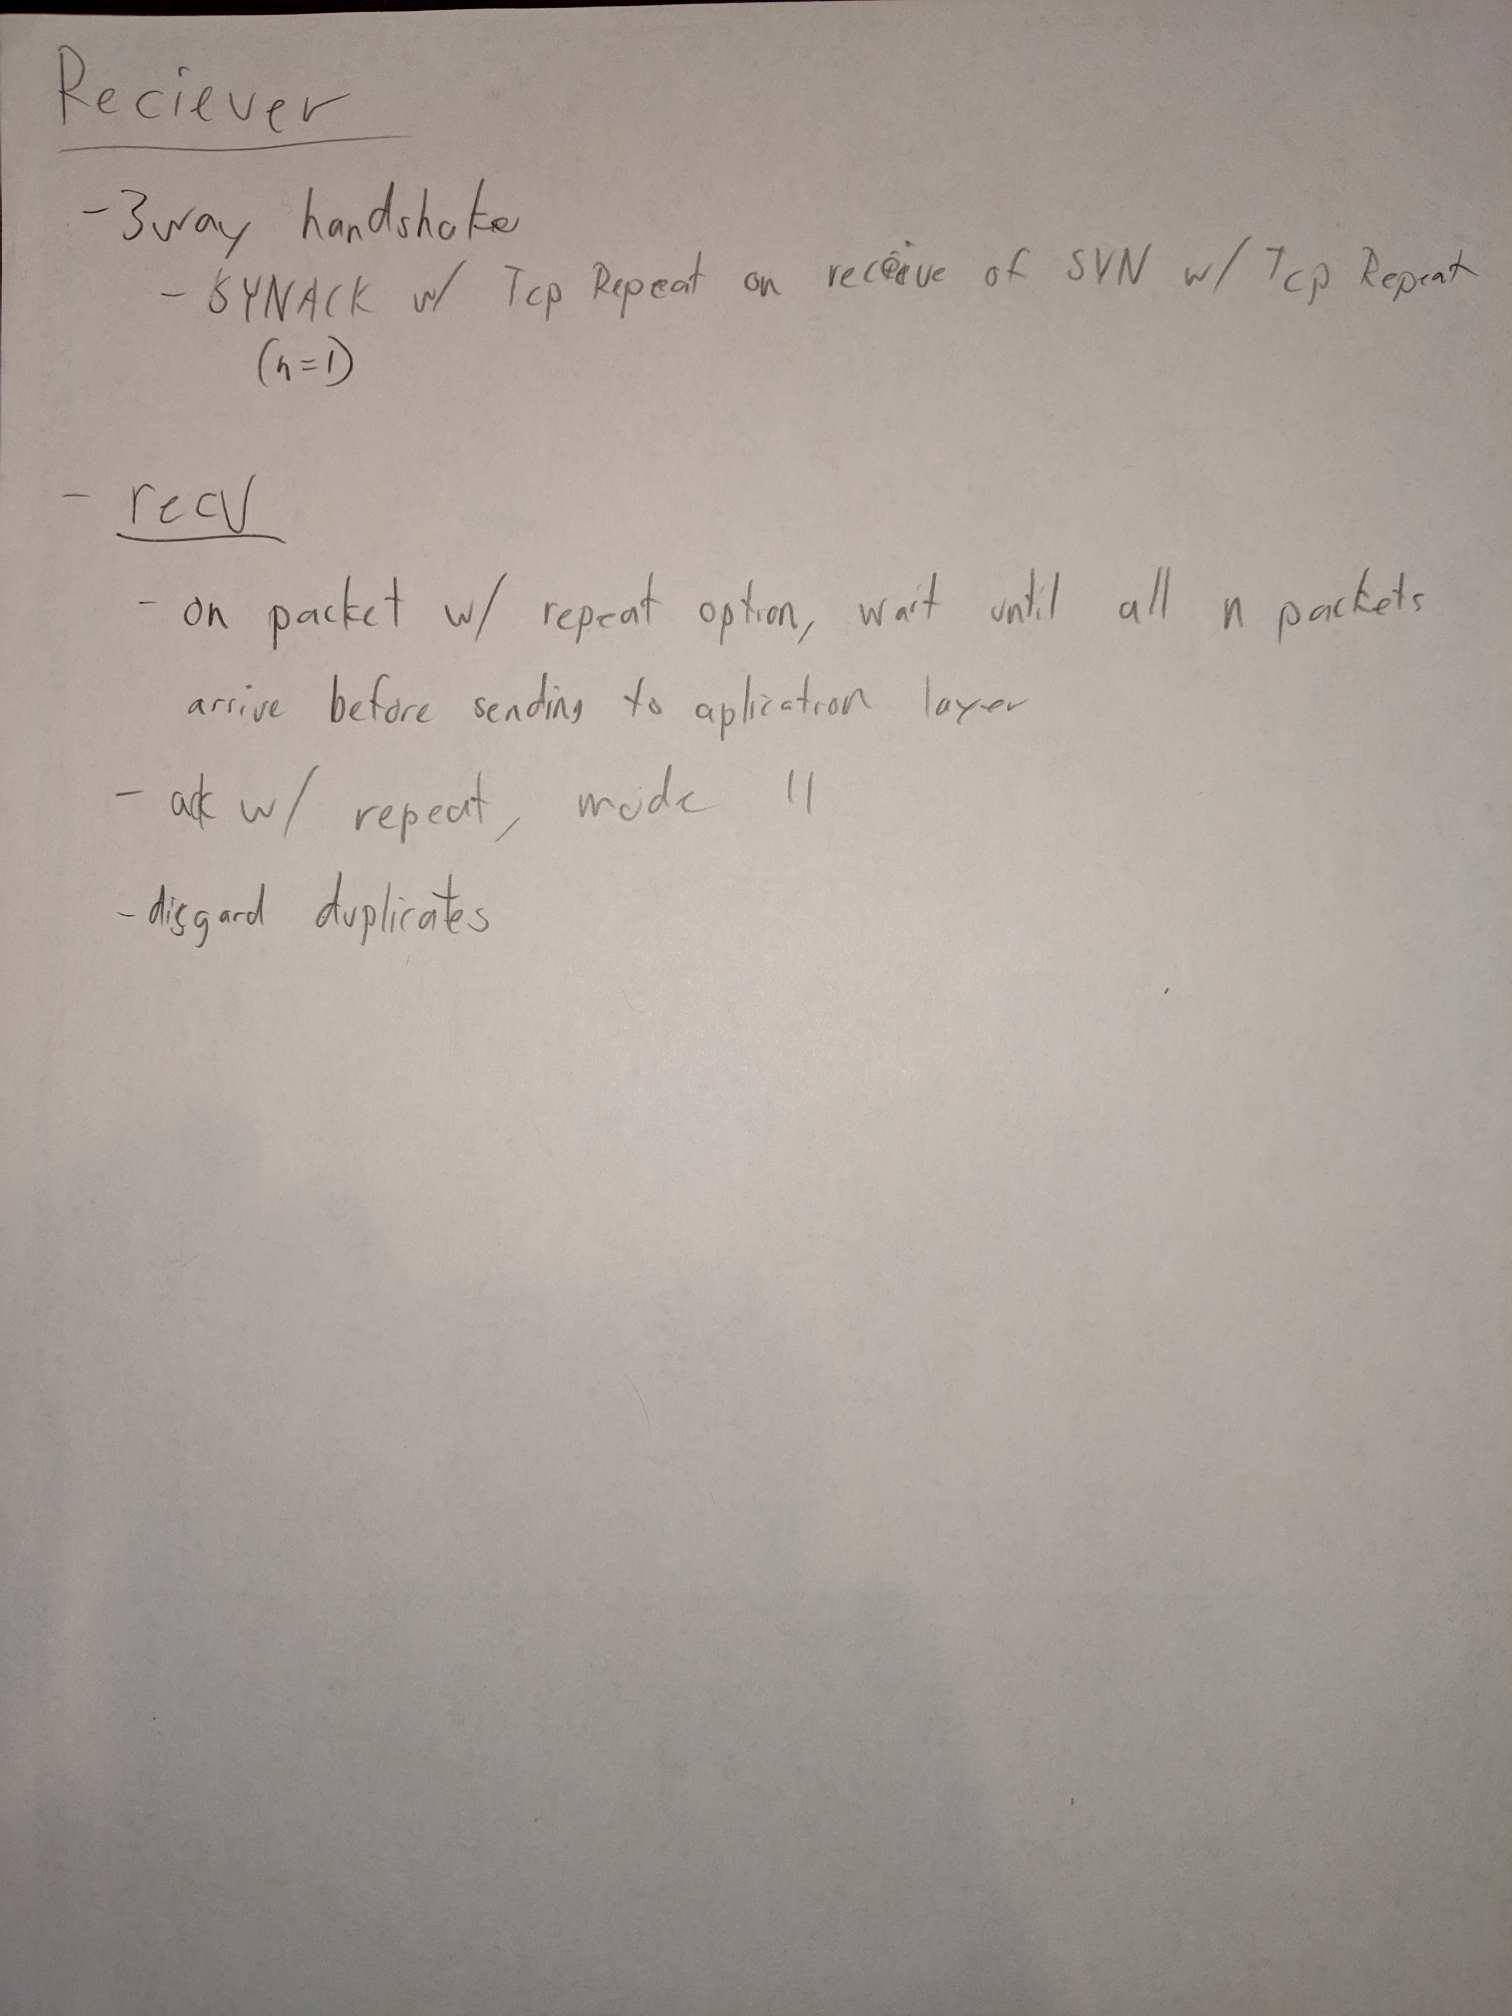 Reciever
- 3way handshake
- SYNACK w/ Tcp Repeat on receive of SYN w/ Tcp Repeat
(n=1)
- recv
- on packet w/ repeat option, wait until all n packets
arrive before sending to aplication layer
- ack w/ repeat, mode 11
- disgard duplicates